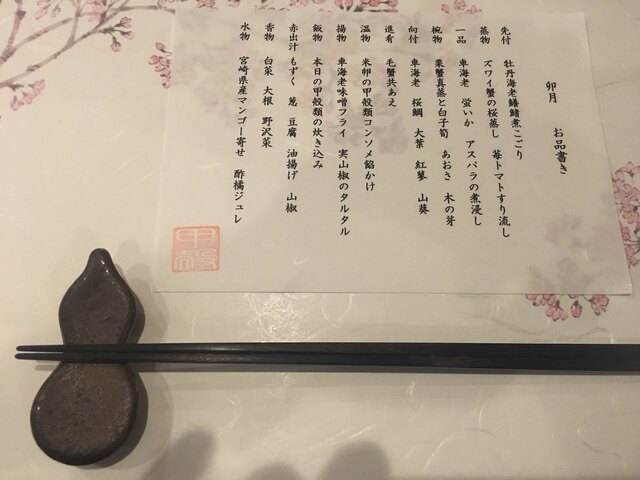 卯月　お品書き
先付　牡丹海老鱶鰭煮こごり
蒸物　ズワイ蟹の桜蒸し　苺トマトすり流し
一品　車海老　蛍いか　アスパラの煮浸し
椀物　栗蟹真蒸と白子筍　あおさ　木の芽
向付　車海老　桜鯛　大葉　紅蓼　山葵
進肴　毛蟹共あえ
温物　米卵の甲殻類コンソメ餡かけ
揚物　車海老味噌フライ　実山椒のタルタル
飯物　本日の甲殻類の炊き込み
赤出汁　もずく　葱　豆腐　油揚げ　山椒
香物　白菜　大根　野沢菜
水物　宮崎県産マンゴー寄せ　酢橘ジュレ
甲殻